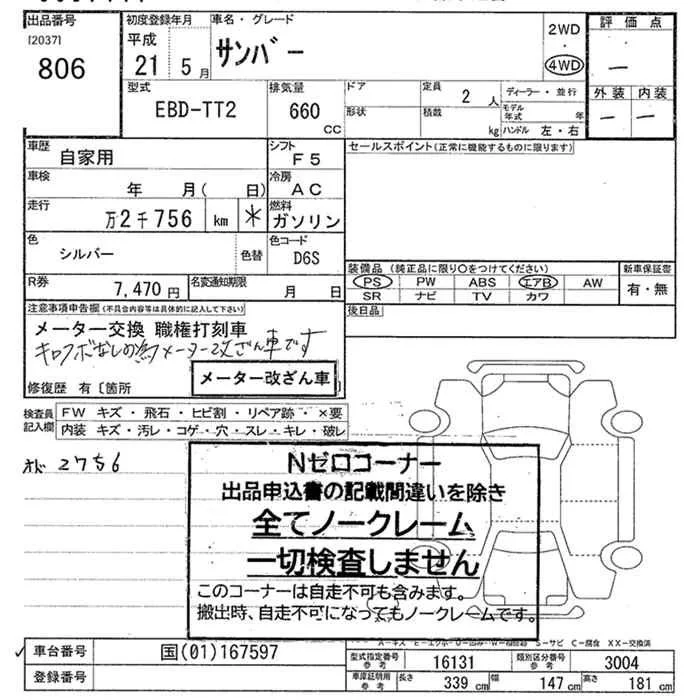 出品番号
[2037]
806
初度登録年月
平成
21 5月
車名・グレード
サンバー
2WD
・
4WD
評価点
－
外装 内装
－ －
型式
EBD-TT2
排気量
660
CC
ドア
定員
2人
形状
積載
kg
ディーラー・並行
モデル年式 年
ハンドル 左・右
車歴
自家用
シフト
F5
車検
年 月( 日)
冷房
AC
走行
万2千756 km *
燃料
ガソリン
色
シルバー
色替
色コード
D6S
R券
7,470円
名変通知期限
月 日
セールスポイント(正常に機能するものに限ります)
装備品 (純正品に限り○をつけてください)
PS PW ABS エアB AW
SR ナビ TV カワ
新車保証書
有・無
後日品
注意事項申告欄(不具合内容等は具体的に記入して下さい)
メーター交換 職権打刻車
キロフボなしの為メーター改ざん車です
メーター改ざん車
修復歴 有〔箇所
検査員記入欄
FW キズ・飛石・ヒビ割・リペア跡・×要
内装 キズ・汚レ・コゲ・穴・スレ・キレ・破レ
オド 2756
Nゼロコーナー
出品申込書の記載間違いを除き
全てノークレーム
一切検査しません
このコーナーは自走不可も含みます。
搬出時、自走不可になってもノークレームです。
A-キズ E-エクボ U-凹み W-補修跡 S-サビ C-腐食 XX-交換済
車台番号
国(01)167597
登録番号
型式指定番号
参考
16131
類別区分番号
参考
3004
車庫証明用
参考
長さ 339 cm
幅 147 cm
高さ 181 cm